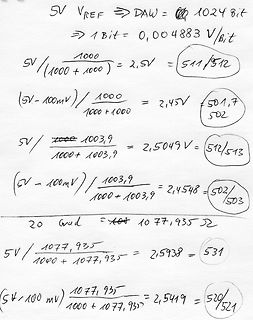 5V VREF => DAW = 1024 Bit
=> 1 Bit = 0,004883 V/Bit
5V/(1000/(1000+1000)) = 2.5V = 511/512
(5V-100mV)/1000/(1000+1000) = 2,45V = 501,7 502
5V/1003,9/(1000+1003,9) = 2,5049V = 512/513
(5V-100mV)/1003,9/(1000+1003,9) = 2,4548 = 502/503
20 Grad = 1077,935 Ω
5V/1077,935/(1000+1077,935) = 2,5938 = 531
(5V-100mV)/1077,935/(1000+1077,935) = 2,5419 = 520/521